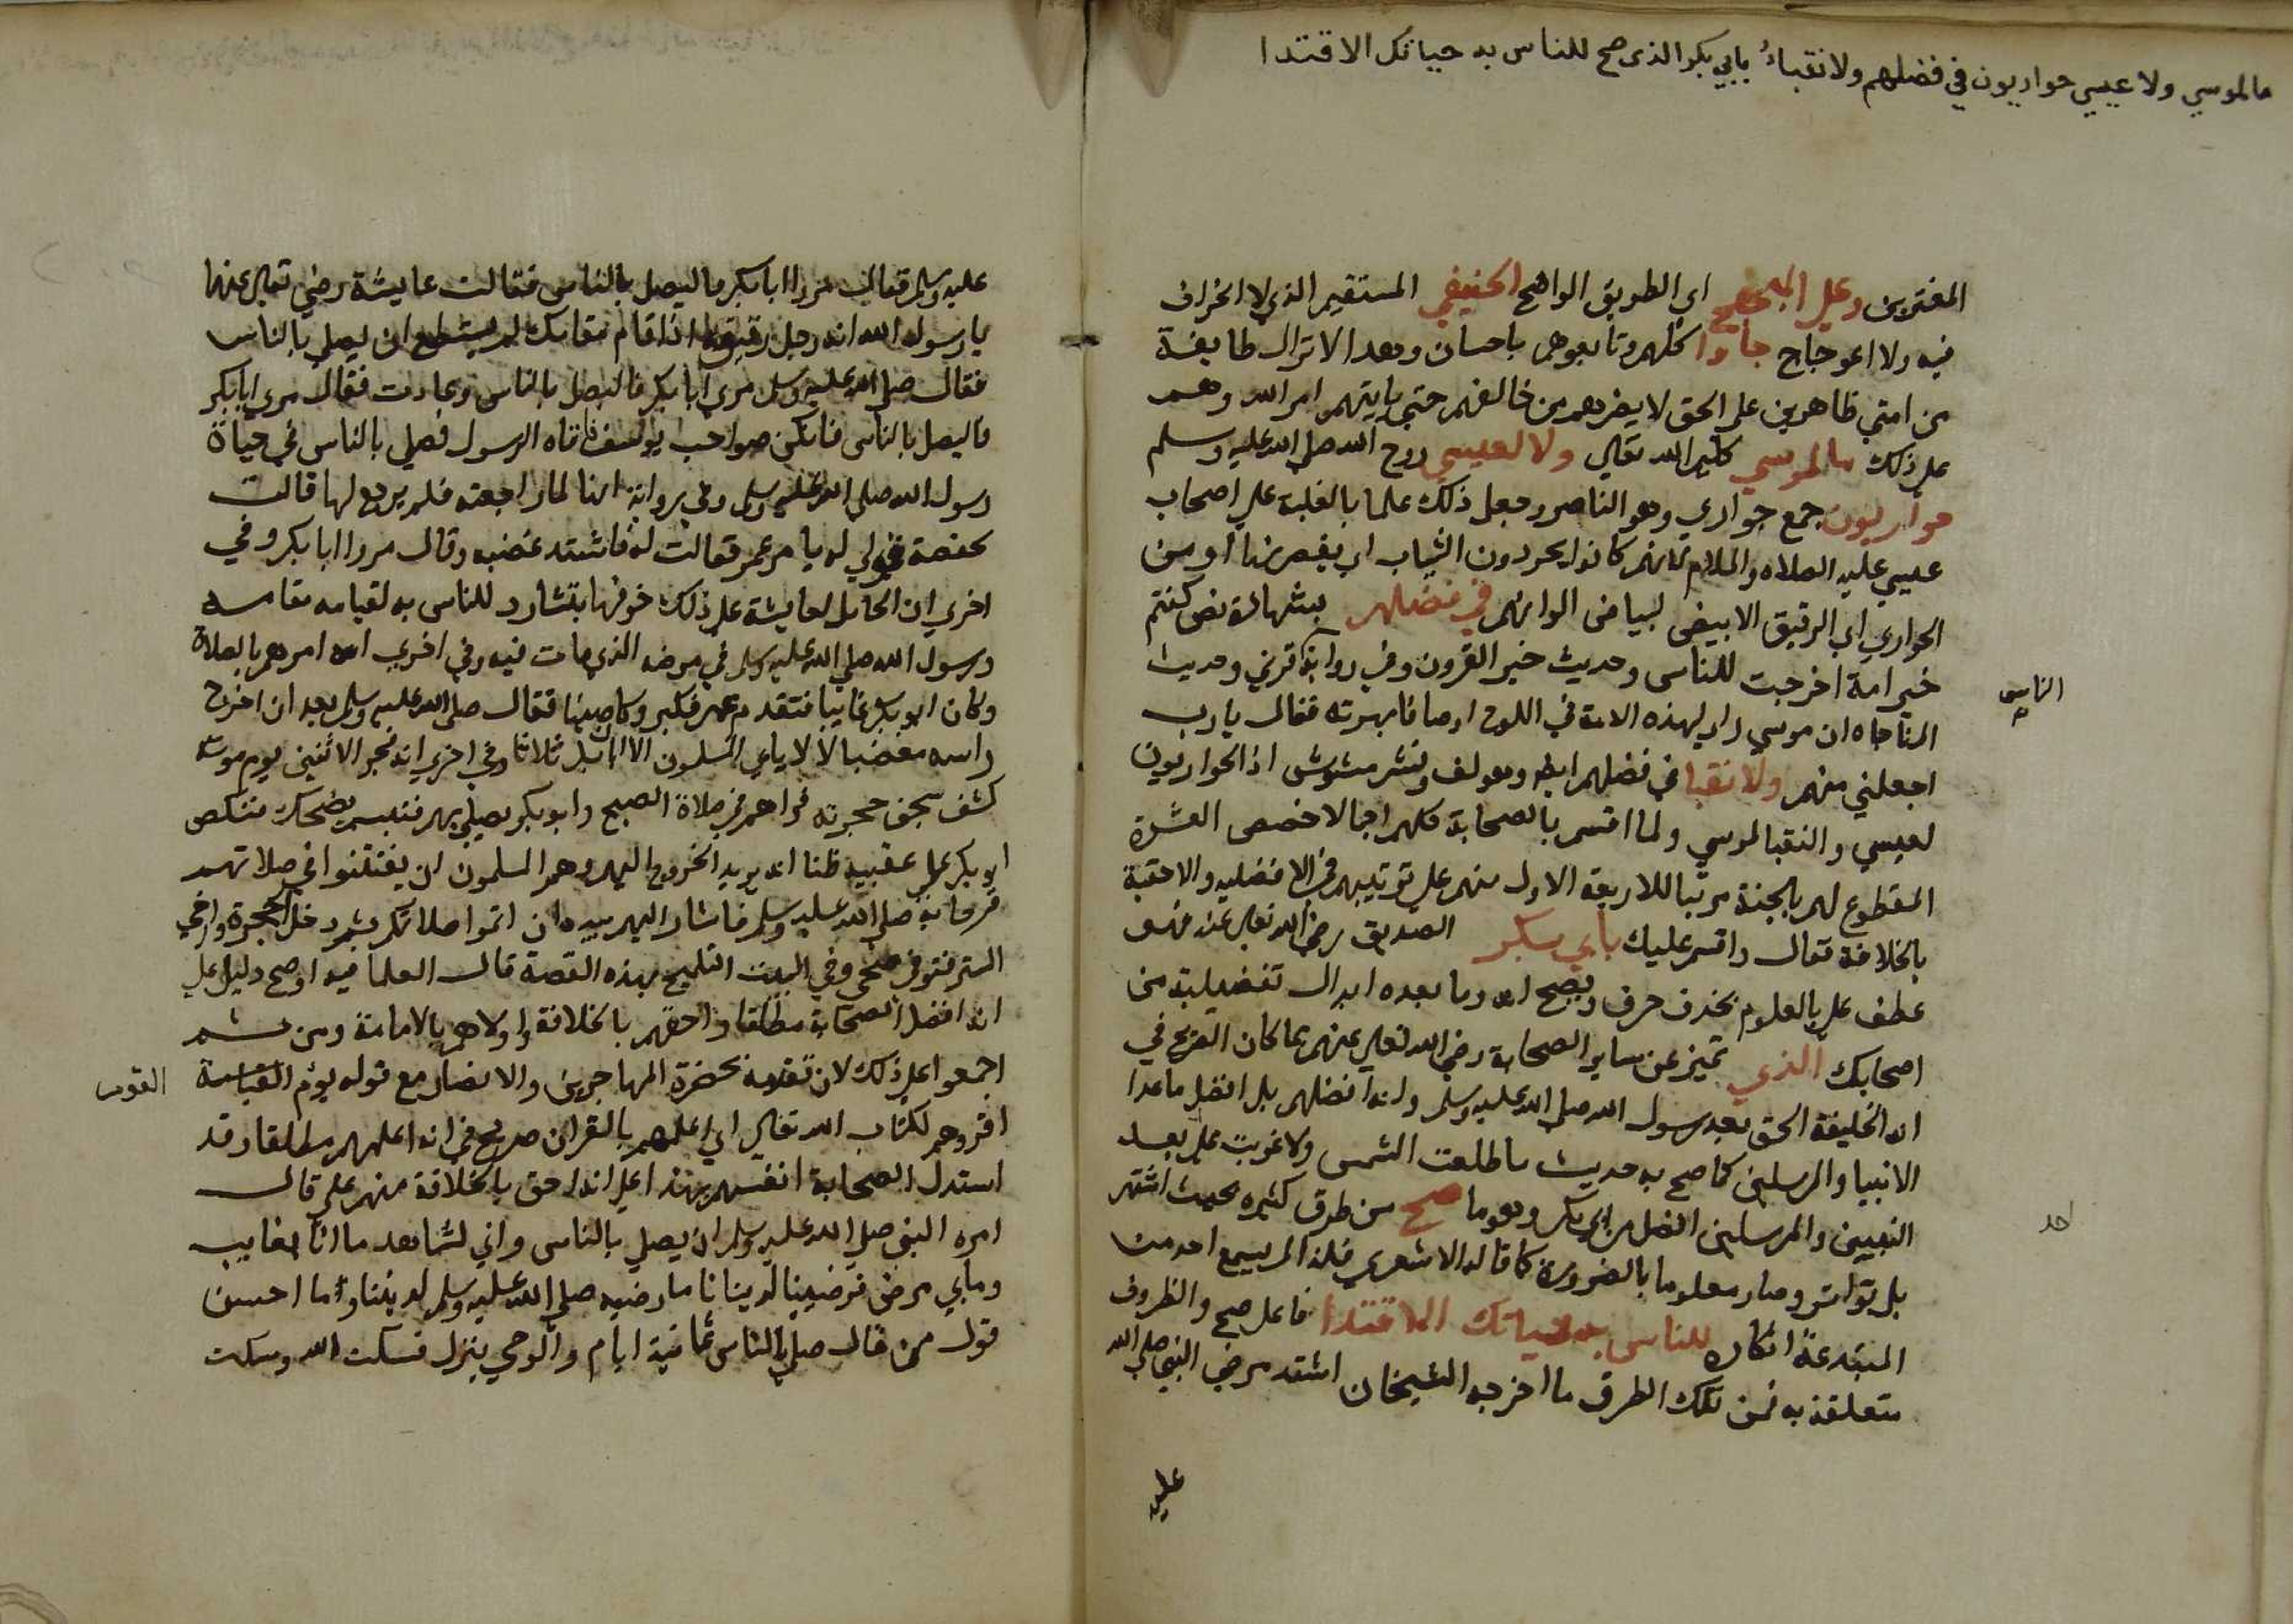 ما لموسي ولا عيسي حواريون في فضلهم ولا نقباءُ بابي بكر الذي صح للناس به حياتك الاقتدا
المفترين وعلي المنهج اي الطريق الواضح الحنيفي المستقيم الذي لا انحراف
فيه ولا اعوجاج جاوا كلهم وتابعوهم باحسان وبعد لا تزال طايفة
من امتي ظاهرين علي الحق لا يضرهم من خالفهم حتي ياتيهم امر الله وهم
علي ذلك ما لموسي كليم الله تعالي ولا لعيسي روح الله صلي الله عليه وسلم
حواريون جمع حواري وهو الناصر وجعل ذلك علما بالغلبة علي اصحاب
عيسي عليه الصلاه والسلام لانهم كانوا يحورون الثياب اي يقصرنها او من
الحواري اي الرقيق الابيض لبياض الوانهم في فضلهم بشهادة نص كنتم
خير امة اخرجت للناس وحديث خير القرون وفي رواية قرني وحديث
المناجاه ان موسي راي لهذه الامة في اللوح اوصافا بهرته فقال يا رب
اجعلني منهم ولا نقبا في فضلهم ايضا وهو لف ونشر مشوش اذ الحواريون
لعيسي والنقبا لموسي ولما اقسم بالصحابة كلهم اجمالا خصص العشرة
المقطوع لهم بالجنة مرتبا للاربعة الاول منهم علي ترتيبهم في الافضليه والاحقية
بالخلافة فقال واقسم عليك بابي بكر الصديق رضي الله تعالي عنه فهو
عطف علي بالعلوم بحذف حرف ويصح انه وما بعده ابدال تفضيلية من
اصحابك الذي تميز عن ساير الصحابة رضي الله تعالي عنهم بما كان الصريح في
انه الخليفة الحق بعد رسول الله صلي الله عليه وسلم وانه افضلهم بل افضل ما عدا
الانبيا والمرسلين كما صح به حديث ما طلعت الشمس ولا غربت علي بعد
النبيين والمرسلين افضل من ابي بكر وهو ما صح من طرق كثيره بحيث اشتهر
بل تواتر وصار معلوما بالضرورة كما قاله الاشعري فلذا لم يسع احد من
المبتدعة انكاره للناس به حياتك الاقتدا فاعل صح والظروف
متعلقة به فمن تلك الطرق ما اخرجه الشيخان اشتد مرض النبي صلي الله
الناس
احد
عليه
عليه وسلم فقال مروا ابا بكر فاليصل بالناس فقالت عايشة رضي تعالي عنها
يا رسول الله انه رجل رقيق اذا قام مقامك لم يستطع ان يصلي بالناس
فقال صلي الله عليه وسلم مري ابا بكر فاليصل بالناس وعادت فقال مري ابا بكر
فاليصل بالناس فانكن صواحب يوسف فاتاه الرسول فصلي بالناس في حياة
رسول الله صلي الله عليه وسلم وفي رواية انها لما راجعته فلم يرجع لها قالت
لحفصة قولي له يامر عمر فقالت له فاشتد غضبه وقال مروا ابا بكر وفي
اخري ان الحامل لعايشة علي ذلك خوفها تشاءم للناس به لقيامه مقام
رسول الله صلي الله عليه وسلم في مرضه الذي مات فيه وفي اخري انه امرهم بالصلاة
وكان ابو بكر غايبا فتقدم عمر فكبر وكان صيتا فقال صلي الله عليه وسلم بعد ان اخرج
راسه مغضبا لا لا يابي المسلمون الا ابا بكر ثلاثا وفي اخري انه فجر الاثنين يوم موته
كشف سجف حجرته فراهم في صلاة الصبح وابو بكر يصلي بهم فتبسم يضحك فنكص
ابو بكر علي عقبيه ظنا انه يريد الخروج اليهم وهم المسلمون ان يفتتنوا في صلاتهم
فرحا به صلي الله عليه وسلم فاشار اليهم بيده ان اتموا صلاتكم ثم دخل الحجرة وارخي
الستر فتوفي ضحي وفي البيت التلميح بهذه القصة قال العلما فيه اوضح دليل علي
انه افضل الصحابة مطلقا واحقهم بالخلافة واولاهم بالامامة ومن ثم
اجمعوا علي ذلك لان تقديمه بحضرة المهاجرين والانصار مع قوله يؤم
القوم
اقروهم لكتاب الله تعالي اي اعلمهم بالقران صريح في انه اعلمهم مطلقا وقد
استدل الصحابة انفسهم بهذا علي انه احق بالخلافة منهم علي قال
امره النبي صلي الله عليه وسلم ان يصلي بالناس واني لشاهد ما انا بغايب
وما بي مرض فرضينا لدينانا ما رضيه صلي الله عليه وسلم لديننا وما احسن
قول من قال صلي بالناس ثمانية ايام والوحي ينزل فسكت الله وسكت